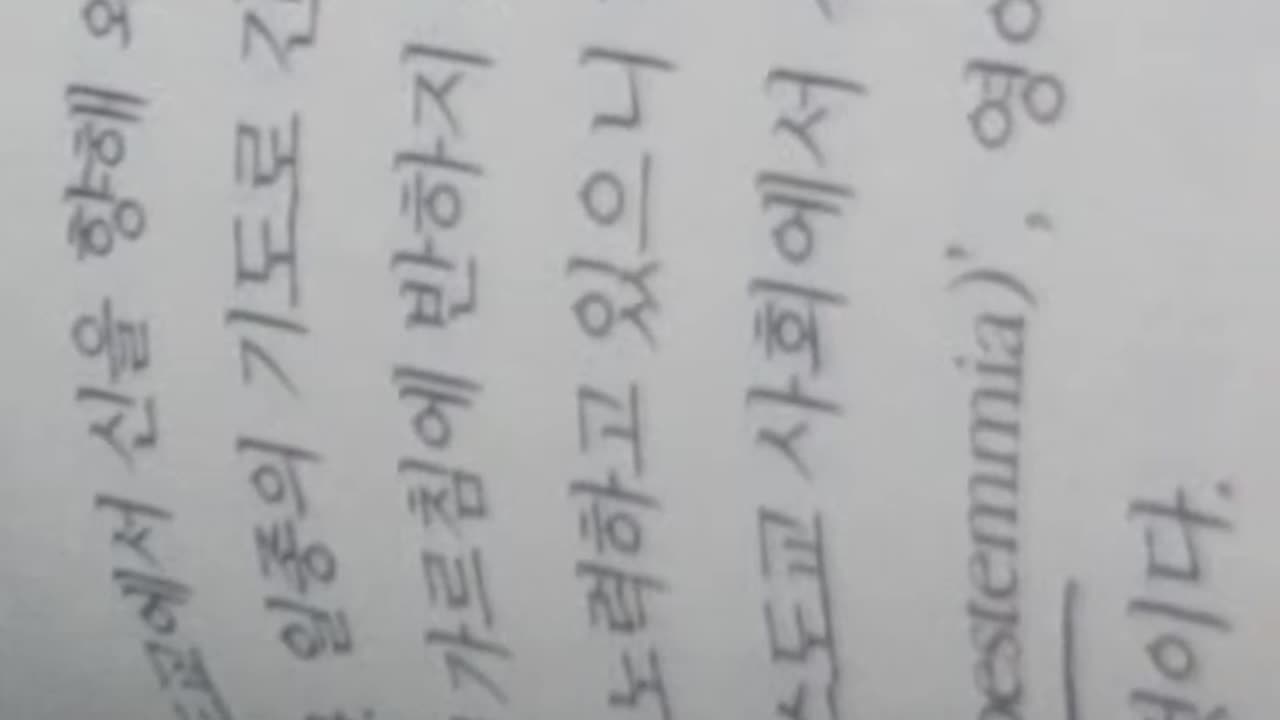 에서 신을 향해
일종의 기도로
가르침에 반하지
노력하고 있으니
스도교 사회에서
)', 영
이다.